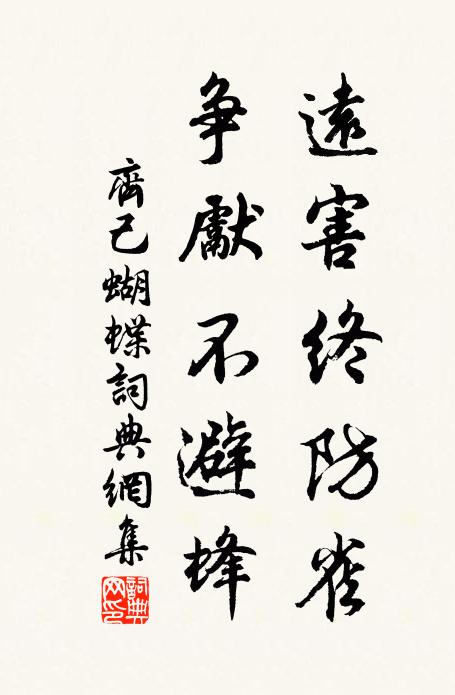 遠害終防雀
爭獻不避蜂
齊己蝴蝶詞典網集
詞典網印